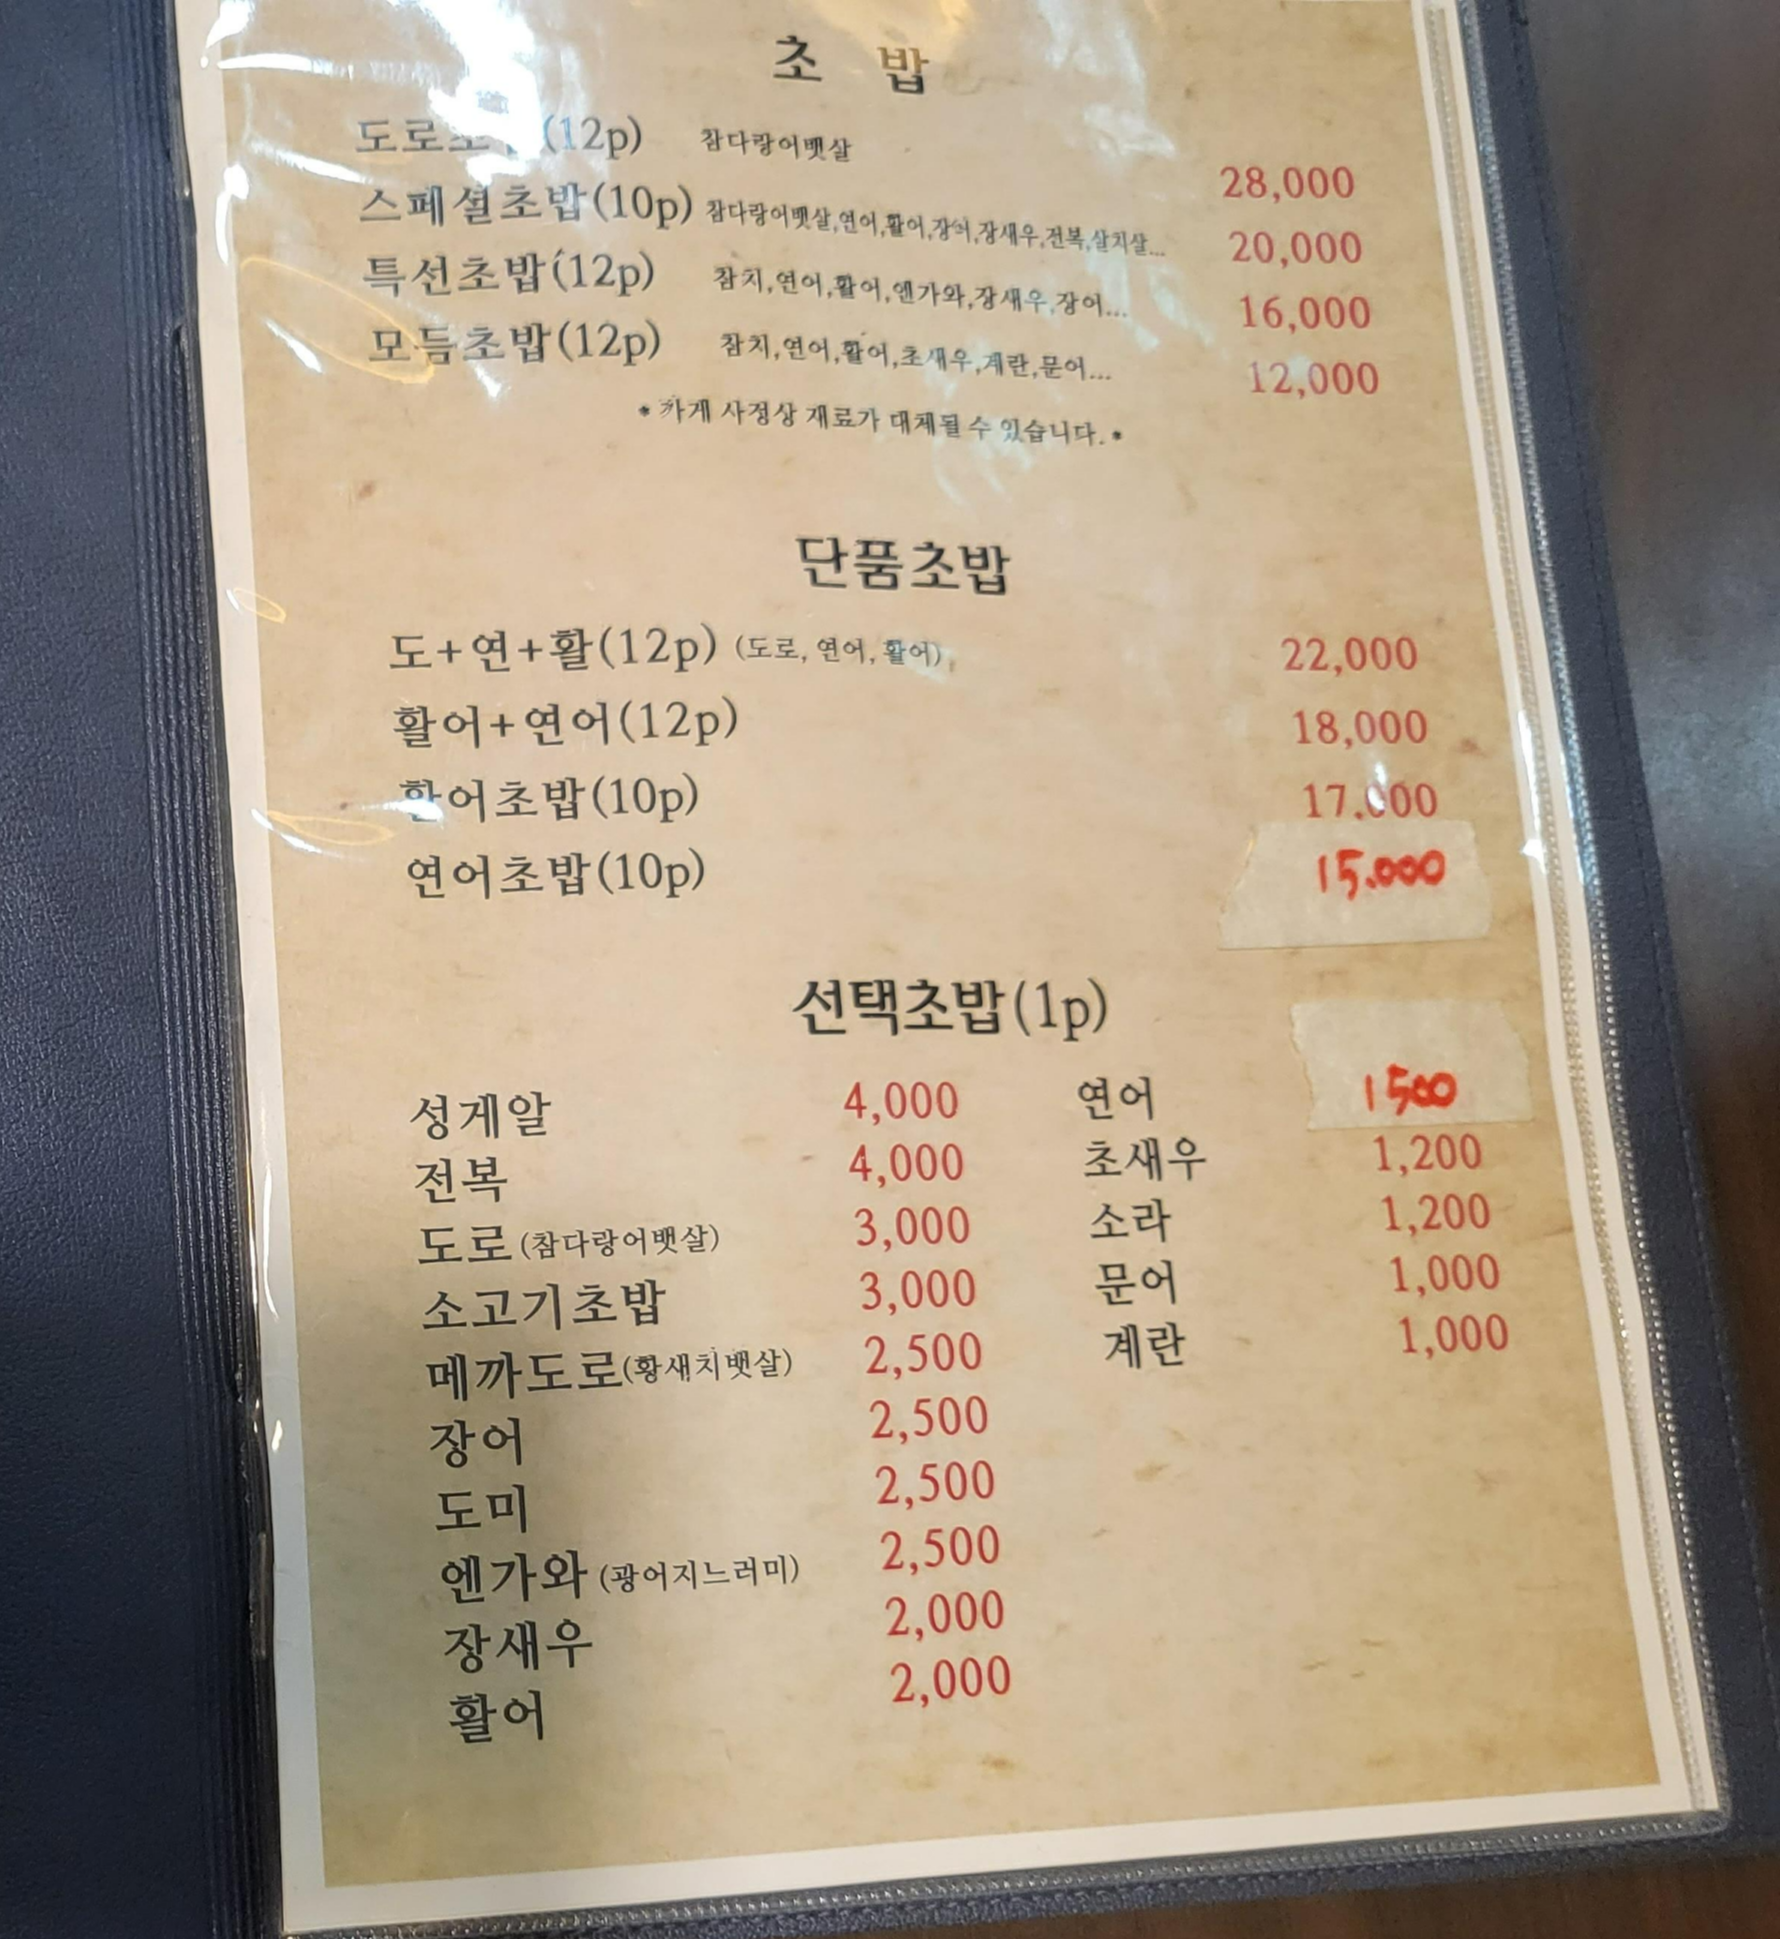 초 밥
도로초밥(12p) 참다랑어뱃살 28,000
스페셜초밥(10p) 참다랑어뱃살,연어,활어,장어,장새우,전복,살치살... 20,000
특선초밥(12p) 참치,연어,활어,엔가와,장새우,장어... 16,000
모듬초밥(12p) 참치,연어,활어,초새우,계란,문어... 12,000
* 가게 사정상 재료가 대체될 수 있습니다. *
단품초밥
도+연+활(12p) (도로, 연어, 활어) 22,000
활어+연어(12p) 18,000
활어초밥(10p) 17,000
연어초밥(10p) 15.000
선택초밥(1p)
성게알 4,000 연어 1500
전복 4,000 초새우 1,200
도로(참다랑어뱃살) 3,000 소라 1,200
소고기초밥 3,000 문어 1,000
메까도로(황새치뱃살) 2,500 계란 1,000
장어 2,500
도미 2,500
엔가와 (광어지느러미) 2,500
장새우 2,000
활어 2,000